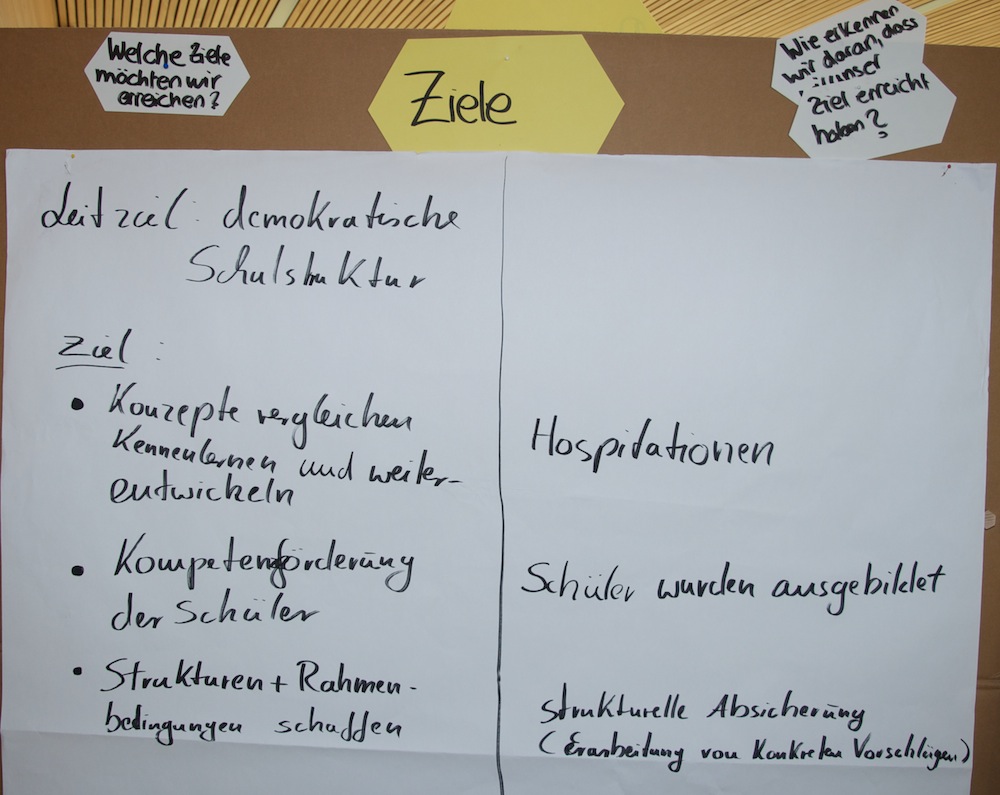 Welche Ziele
möchten wir
erreichen?
Ziele
Wie erkennen
wir daran, dass
unser
Ziel erreicht
haben?
Leitziel: demokratische
Schulstruktur
Ziel:
• Konzepte vergleichen
Kennenlernen und weiter-
entwickeln
• Kompetenzförderung
der Schüler
• Strukturen + Rahmen-
bedingungen schaffen
Hospitationen
Schüler wurden ausgebildet
strukturelle Absicherung
(Erarbeitung von konkreten Vorschlägen)